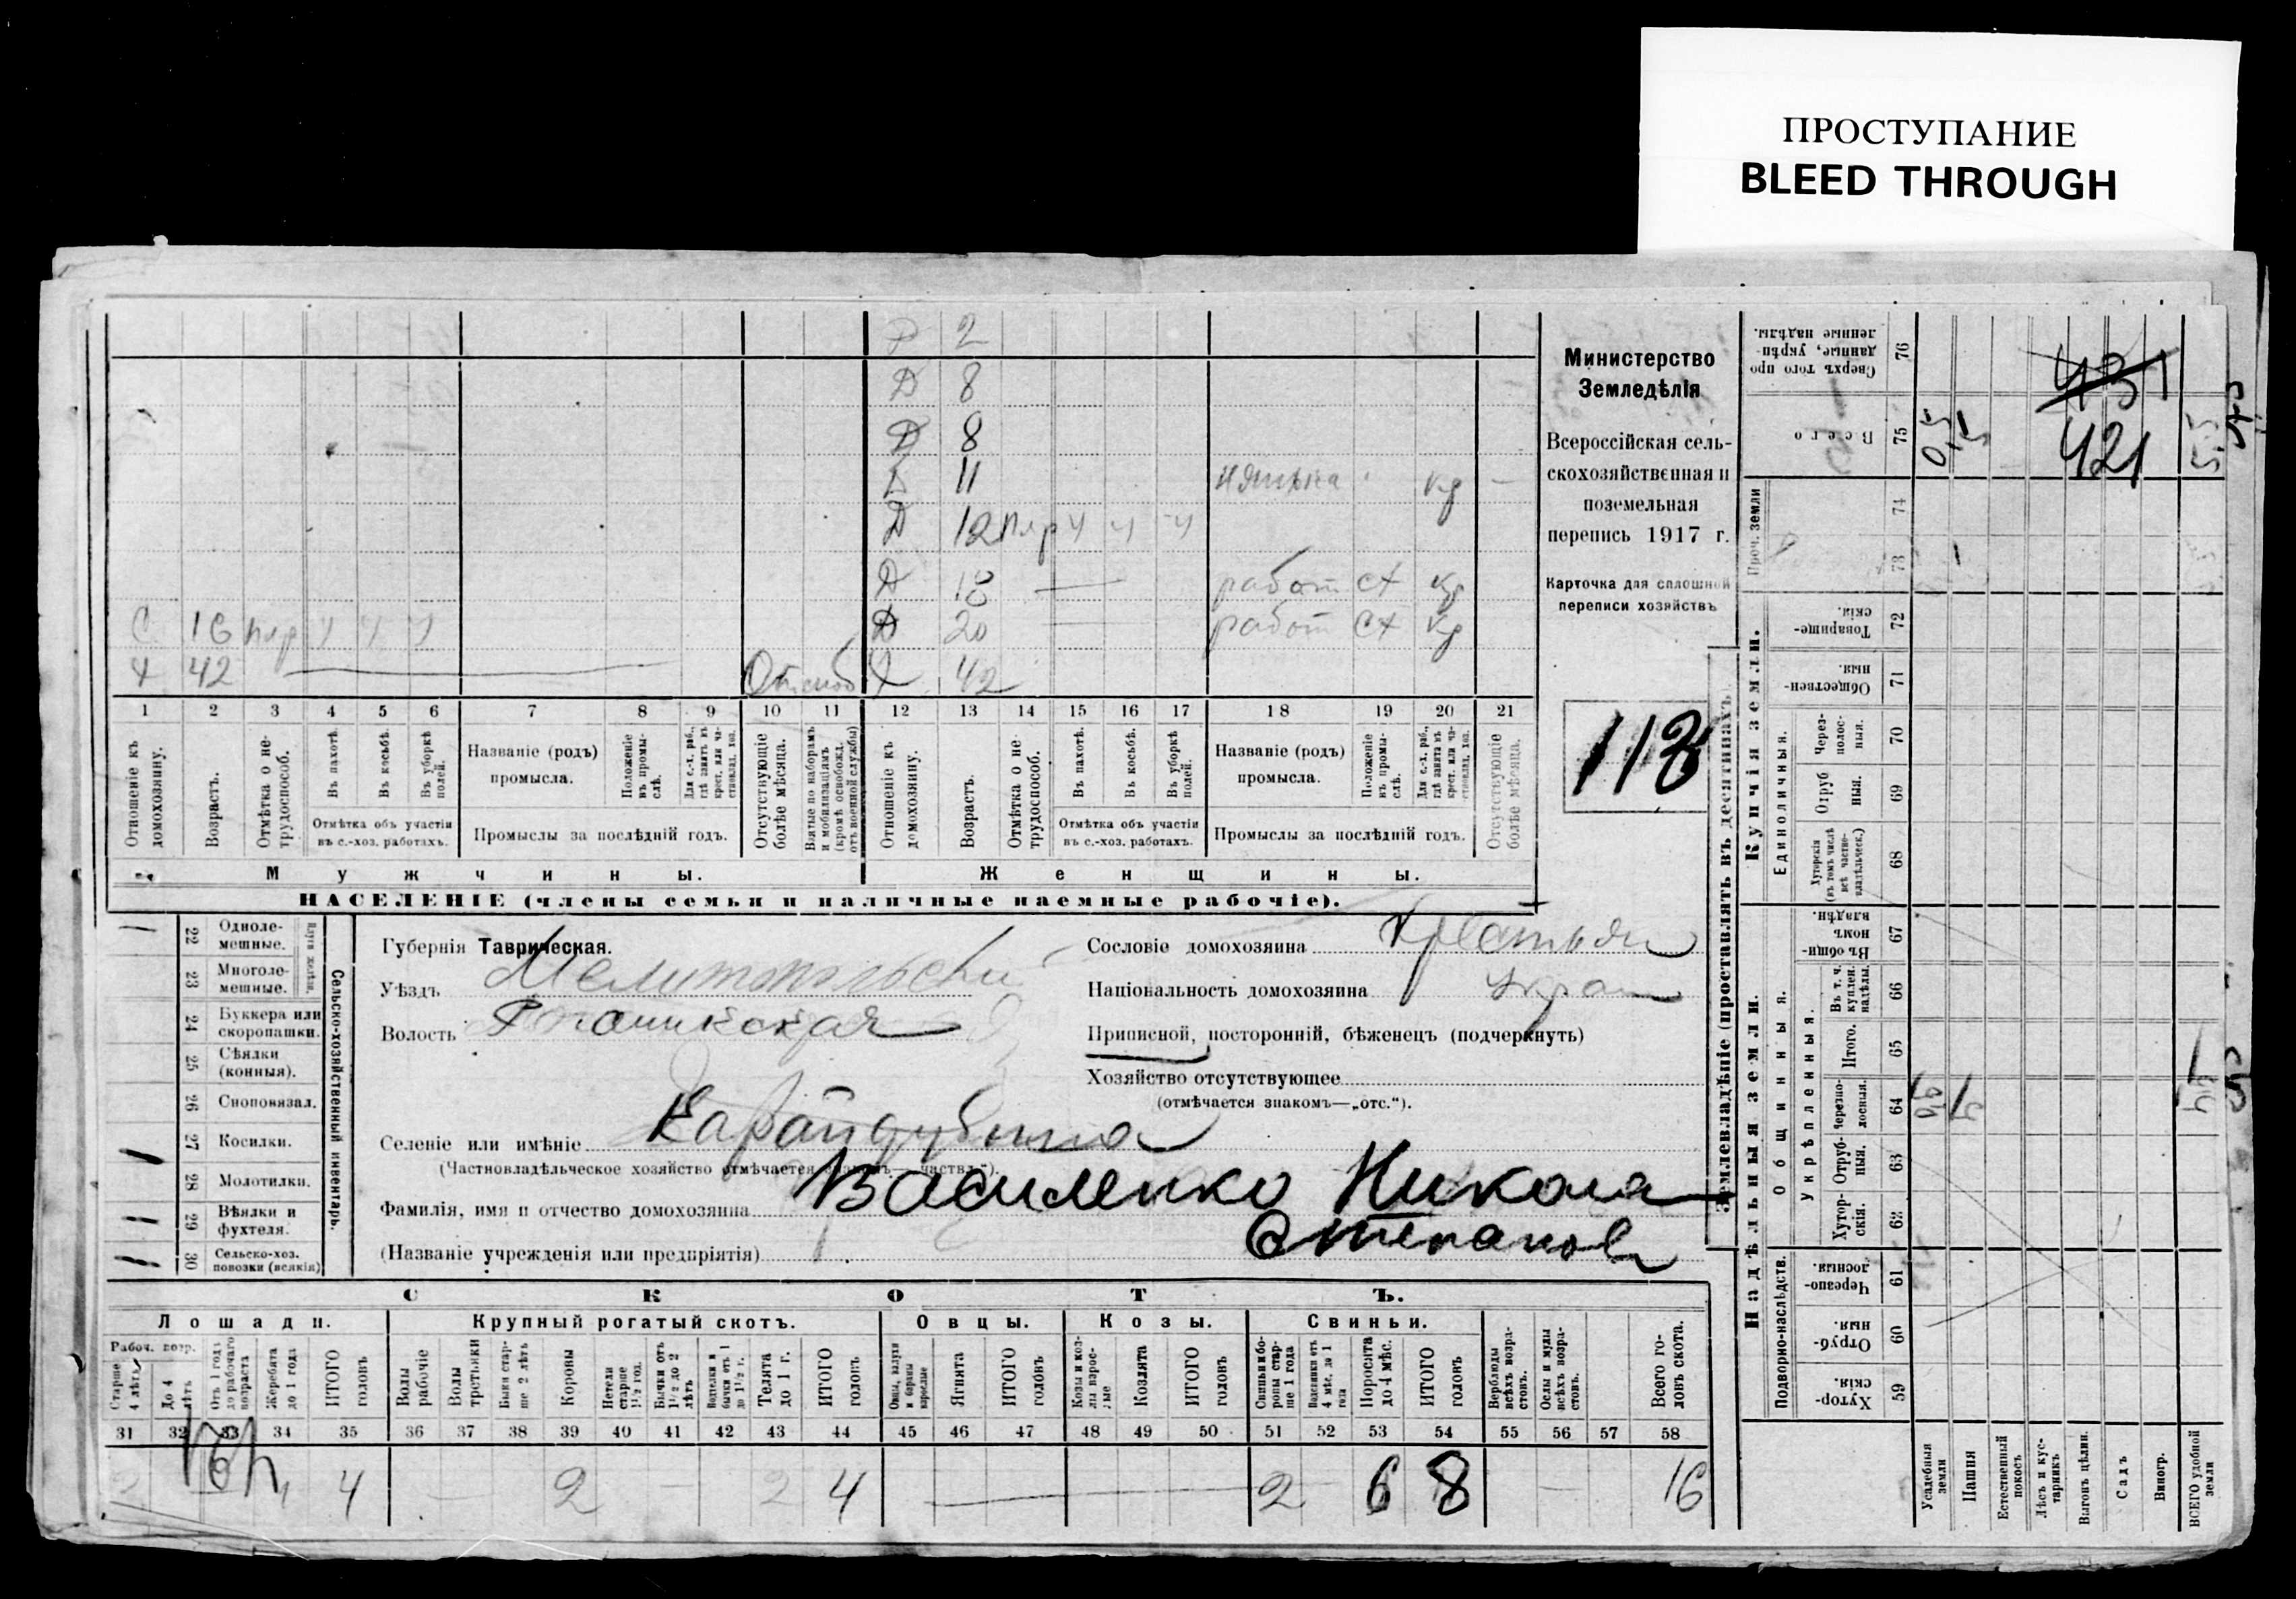 ПРОСТУПАНИЕ
BLEED THROUGH
Р 2
Д 8
Д 8
Д 11 нянька кр —
Д 12 плр ч ч ч
Д 18 — работ сх кр
Д 20 — работ сх кр
С 16 плр ч ч ч
Х 42 Отснов
42
1 2 3 4 5 6 7 8 9 10 11 12 13 14 15 16 17 18 19 20 21
Отношеніе къ домохозяину.
Возрастъ.
Отмѣтка о не-трудоспособ.
Въ пахотѣ.
Въ косьбѣ.
Въ уборкѣ полей.
Отмѣтка объ участіи въ с.-хоз. работахъ.
Названіе (родъ) промысла.
Положеніе въ промы-слѣ.
Для с.-х. раб., гдѣ занятъ въ крест. или ча-стновлад. хоз.
Промыслы за послѣдній годъ.
Отсутствующіе болѣе мѣсяца.
Взятые по наборамъ и мобилизаціямъ (кромѣ освобожд. отъ военной службы)
Отношеніе къ домохозяину.
Возрастъ.
Отмѣтка о не-трудоспособ.
Въ пахотѣ.
Въ косьбѣ.
Въ уборкѣ полей.
Отмѣтка объ участіи въ с.-хоз. работахъ.
Названіе (родъ) промысла.
Положеніе въ промы-слѣ.
Для с.-х. раб., гдѣ занята въ крест. или ча-стновлад. хоз.
Промыслы за послѣдній годъ.
Отсутствующіе болѣе мѣсяца.
Мужчины.
Женщины.
НАСЕЛЕНІЕ (члены семьи и наличные наемные рабочіе).
Министерство
Земледѣлія
Всероссійская сель-
скохозяйственная и
поземельная
перепись 1917 г.
Карточка для сплошной
переписи хозяйствъ
118
22 Одноле-мешные.
23 Многоле-мешные.
24 Буккера или скоропашки.
25 Сѣялки (конныя).
26 Сноповязал.
27 Косилки.
28 Молотилки.
29 Вѣялки и фухтеля.
30 Сельско-хоз. повозки (всякія)
Сельско-хозяйственный инвентарь.
Губернія Таврическая.
Уѣздъ Мелитопольскій
Волость Рогачикская
Селеніе или имѣніе Карайдубина
(Частновладѣльческое хозяйство отмѣчается знакомъ—„частвл.“).
Фамилія, имя и отчество домохозяина Василенко Никола
Степанов
(Названіе учрежденія или предпріятія)
Сословіе домохозяина Крестьян
Національность домохозяина Укра
Приписной, посторонній, бѣженецъ (подчеркнуть)
Хозяйство отсутствующее
(отмѣчается знакомъ—„отс.“).
СКОТЪ.
Лошади. Крупный рогатый скотъ. Овцы. Козы. Свиньи.
Рабоч. возр.
Старше 4 лѣтъ
До 4 лѣтъ
Отъ 1 года до рабочаго возраста
Жеребята до 1 года
ИТОГО головъ
Волы рабочіе
Волы третьяки
Быки стар-ше 2 лѣтъ
Коровы
Нетели старше 1½ год.
Бычки отъ 1½ до 2 лѣтъ
Телята до 1 г.
ИТОГО головъ
Ягнята
ИТОГО головъ
Козы и коз-лы взрос-лые
Козлята
ИТОГО головъ
Свиньи и бо-ровы стар-ше 1 года
Поросята до 4 мѣс.
ИТОГО головъ
Верблюды всѣхъ возра-стовъ.
Ослы и мулы всѣхъ возра-стовъ.
Всего го-ловъ скота.
31 32 33 34 35 36 37 38 39 40 41 42 43 44 45 46 47 48 49 50 51 52 53 54 55 56 57 58
2 1 4 — 2 — 2 4 — 2 6 8 — 16
Землевладѣніе (проставлять въ десятинахъ).
Купчія земли.
Надѣльныя земли.
Сверхъ того про данные, укрѣп-ленные надѣлы. 76
Всего 75
Проч. земли 74 73
Товарище-скія. 72
Обществен-ныя. 71
Единоличныя.
Через-полос-ныя. 70
Отруб ныя. 69
Хуторскія (въ томъ числѣ всѣ частно-владѣльческ.) 68
Въ общи-номъ владѣн. 67
Общинныя.
Укрѣпленныя.
Въ т. ч. куплен. надѣлы. 66
Итого. 65
Черезпо-лосныя. 64
Отруб-ныя. 63
Хутор-скія. 62
Подворно-наслѣдств.
Черезпо-лосныя. 61
Отруб-ныя. 60
Хутор-скія. 59
Усадебныя земли
Пашня
Естественный покосъ
Лѣсъ и кус-тарникъ
Выгонъ цѣлин.
Садъ
Виногр.
ВСЕГО удобной земли
431
421
0,5
5,5